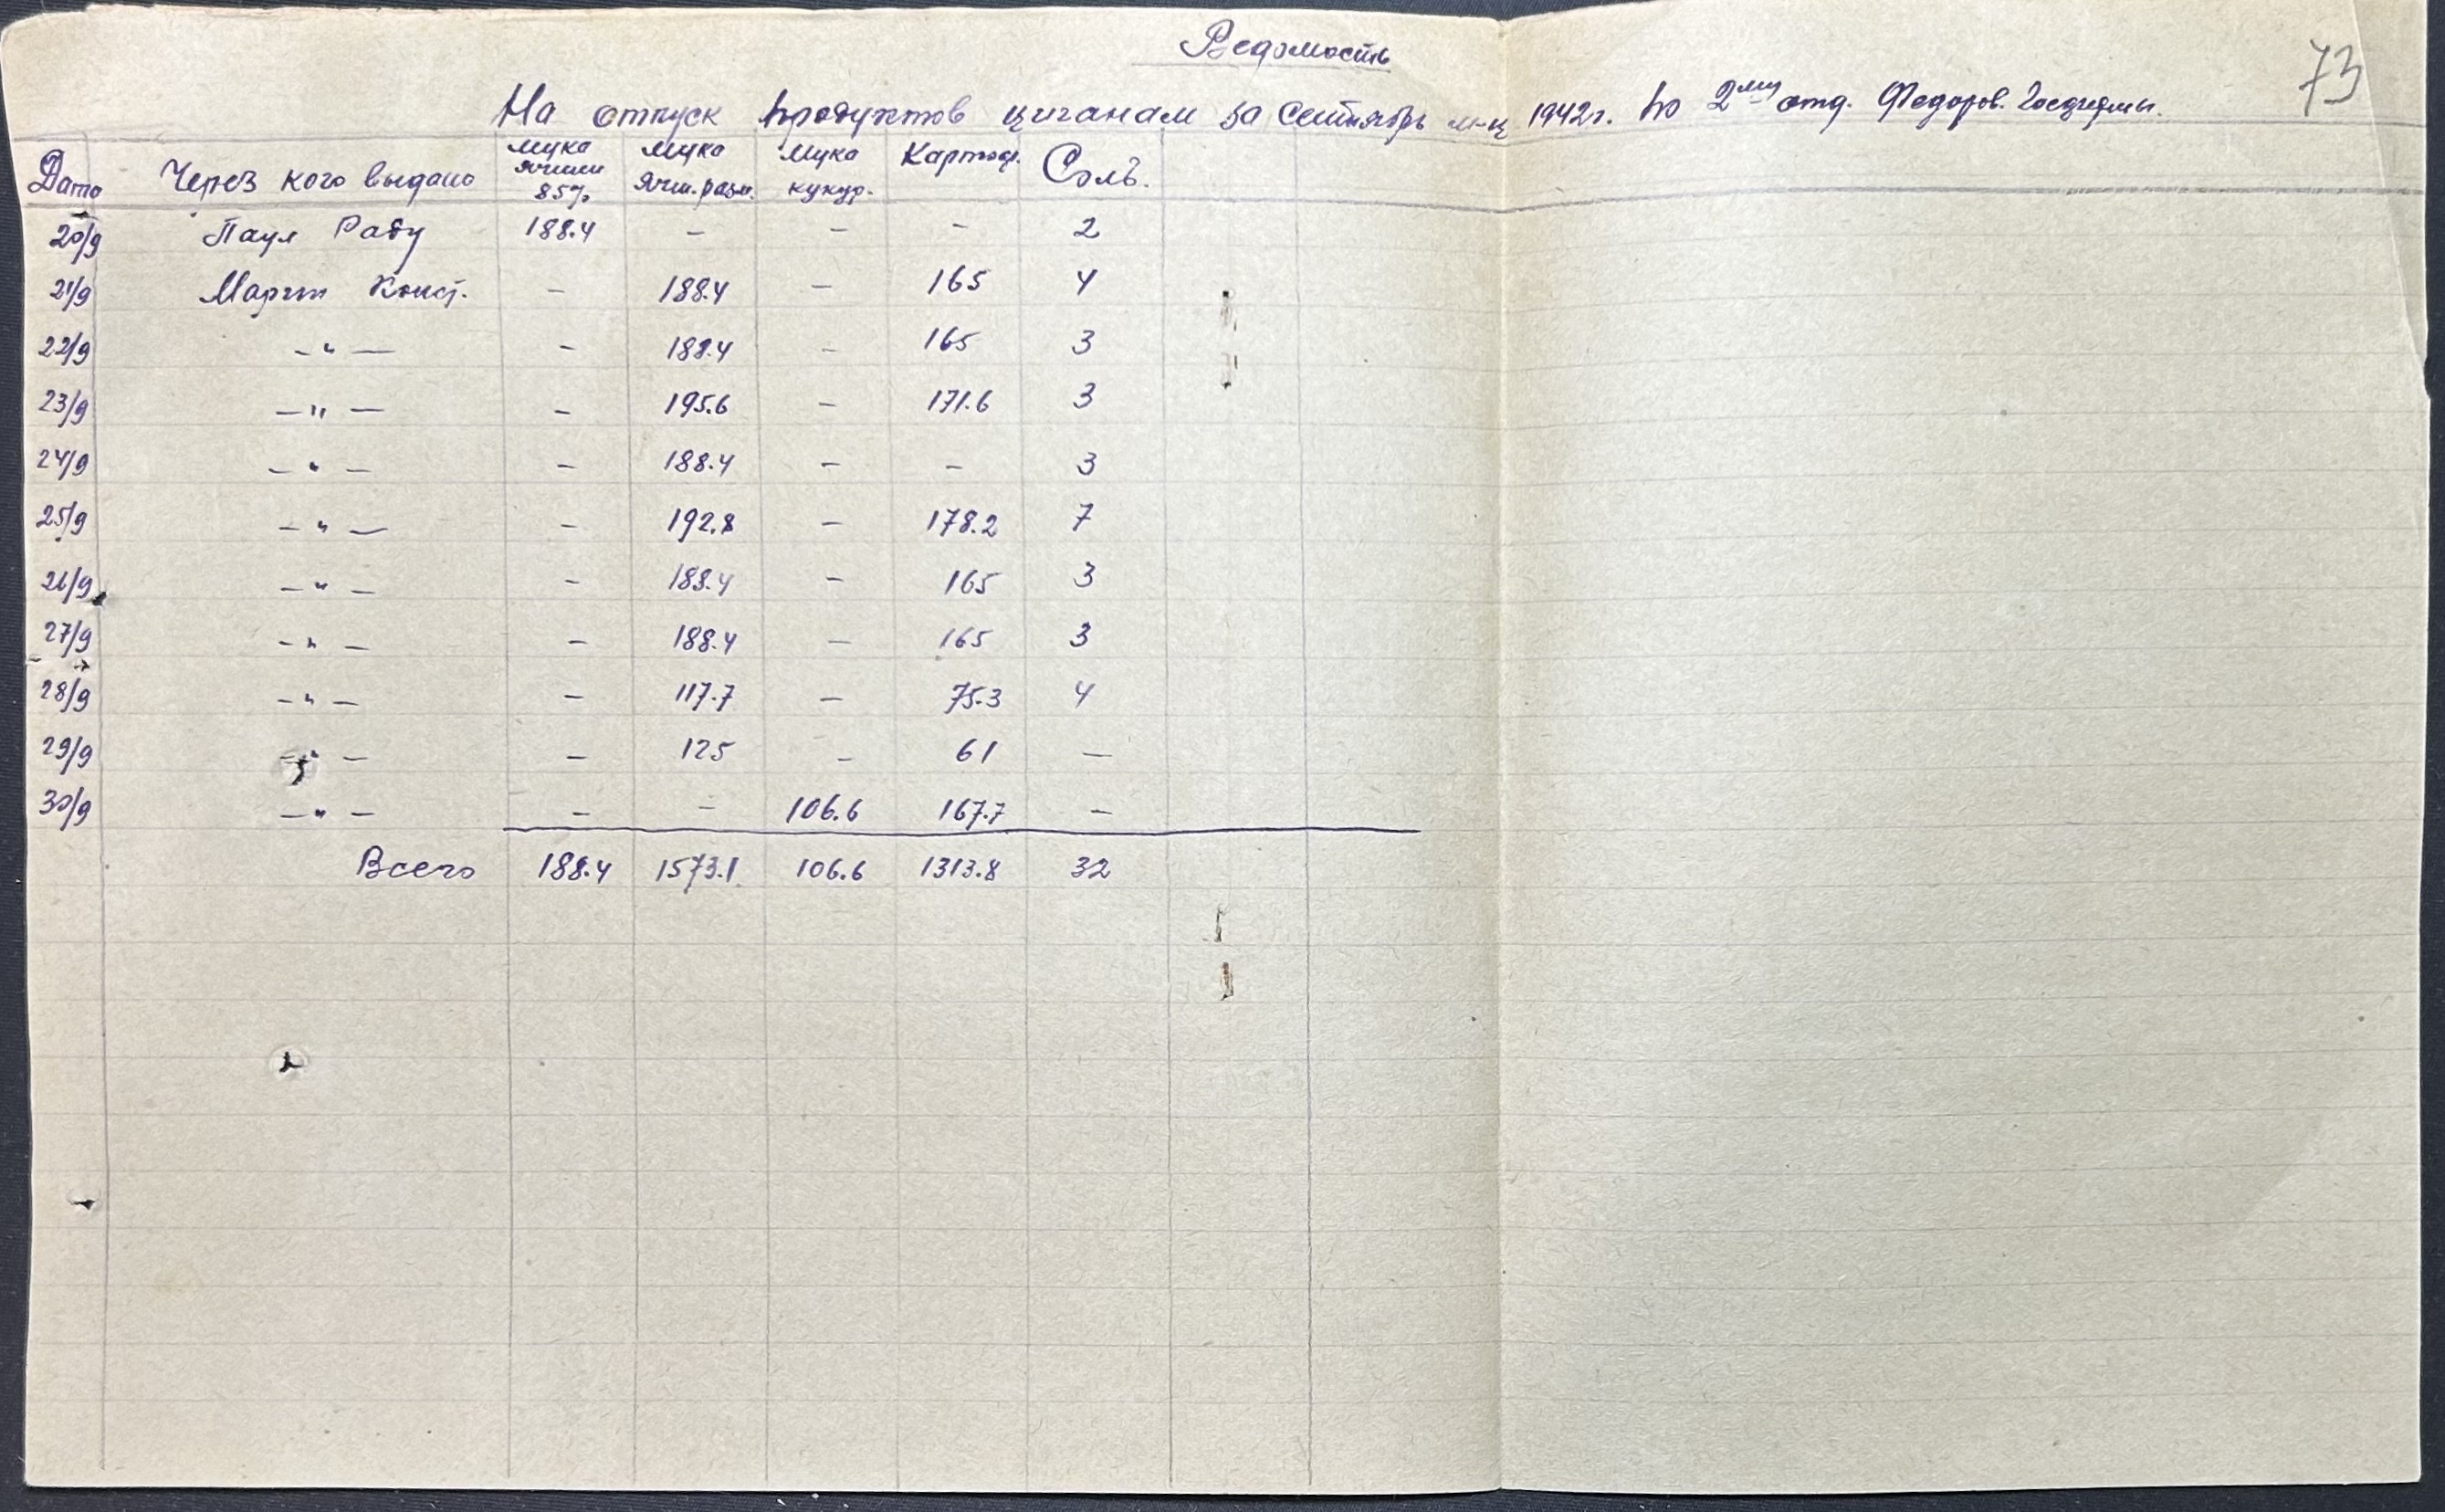 73
Ведомость
На отпуск продуктов циганам за Сентябрь м-ц 1942г. по 2му отд. Федоров. Госфермы.
Дата Через кого выдано Мука ячмен 85% Мука ячм. разм. Мука кукур. Картоф. Соль.
20/9 Паул Раду 188.4 - - - 2
21/9 Марин Конст. - 188.4 - 165 4
22/9 -"- - 188.4 - 165 3
23/9 -"- - 195.6 - 171.6 3
24/9 -"- - 188.4 - - 3
25/9 -"- - 192.8 - 178.2 7
26/9 -"- - 188.4 - 165 3
27/9 -"- - 188.4 - 165 3
28/9 -"- - 117.7 - 75.3 4
29/9 -"- - 125 - 61 -
30/9 -"- - - 106.6 167.7 -
Всего 188.4 1573.1 106.6 1313.8 32